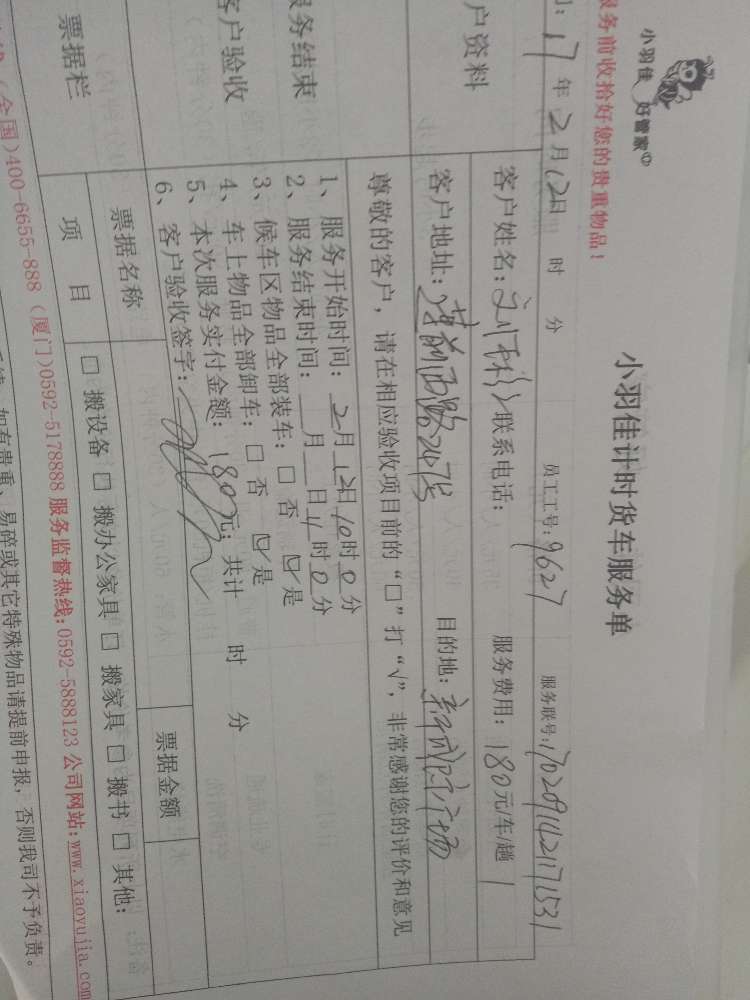 小羽佳 好管家
小羽佳计时货车服务单
服务前收拾好您的贵重物品！
17年2月12日 时 分 员工工号：9627 服务联号：170209142171531
户资料
客户姓名： 联系电话： 服务费用：180元/车/趟
客户地址：莲前西路247号 目的地：新城际广场
尊敬的客户，请在相应验收项目前的“□”打“√”，非常感谢您的评价和意见
服务结束
客户验收
1、服务开始时间：2月12日10时0分
2、服务结束时间： 月 日11时0分
3、候车区物品全部装车：□否 ☑是
4、车上物品全部卸车：□否 ☑是
5、本次服务实付金额：180元；共计 时 分
6、客户验收签字：
票据栏
票据名称 票据金额
项目 □搬设备 □搬办公家具 □搬家具 □搬书 □其他：
(全国)400-6655-888 (厦门)0592-5178888 服务监督热线:0592-5888123 公司网站:www.xiaoyujia.com
如有贵重、易碎或其它特殊物品请提前申报，否则我司不予负责。